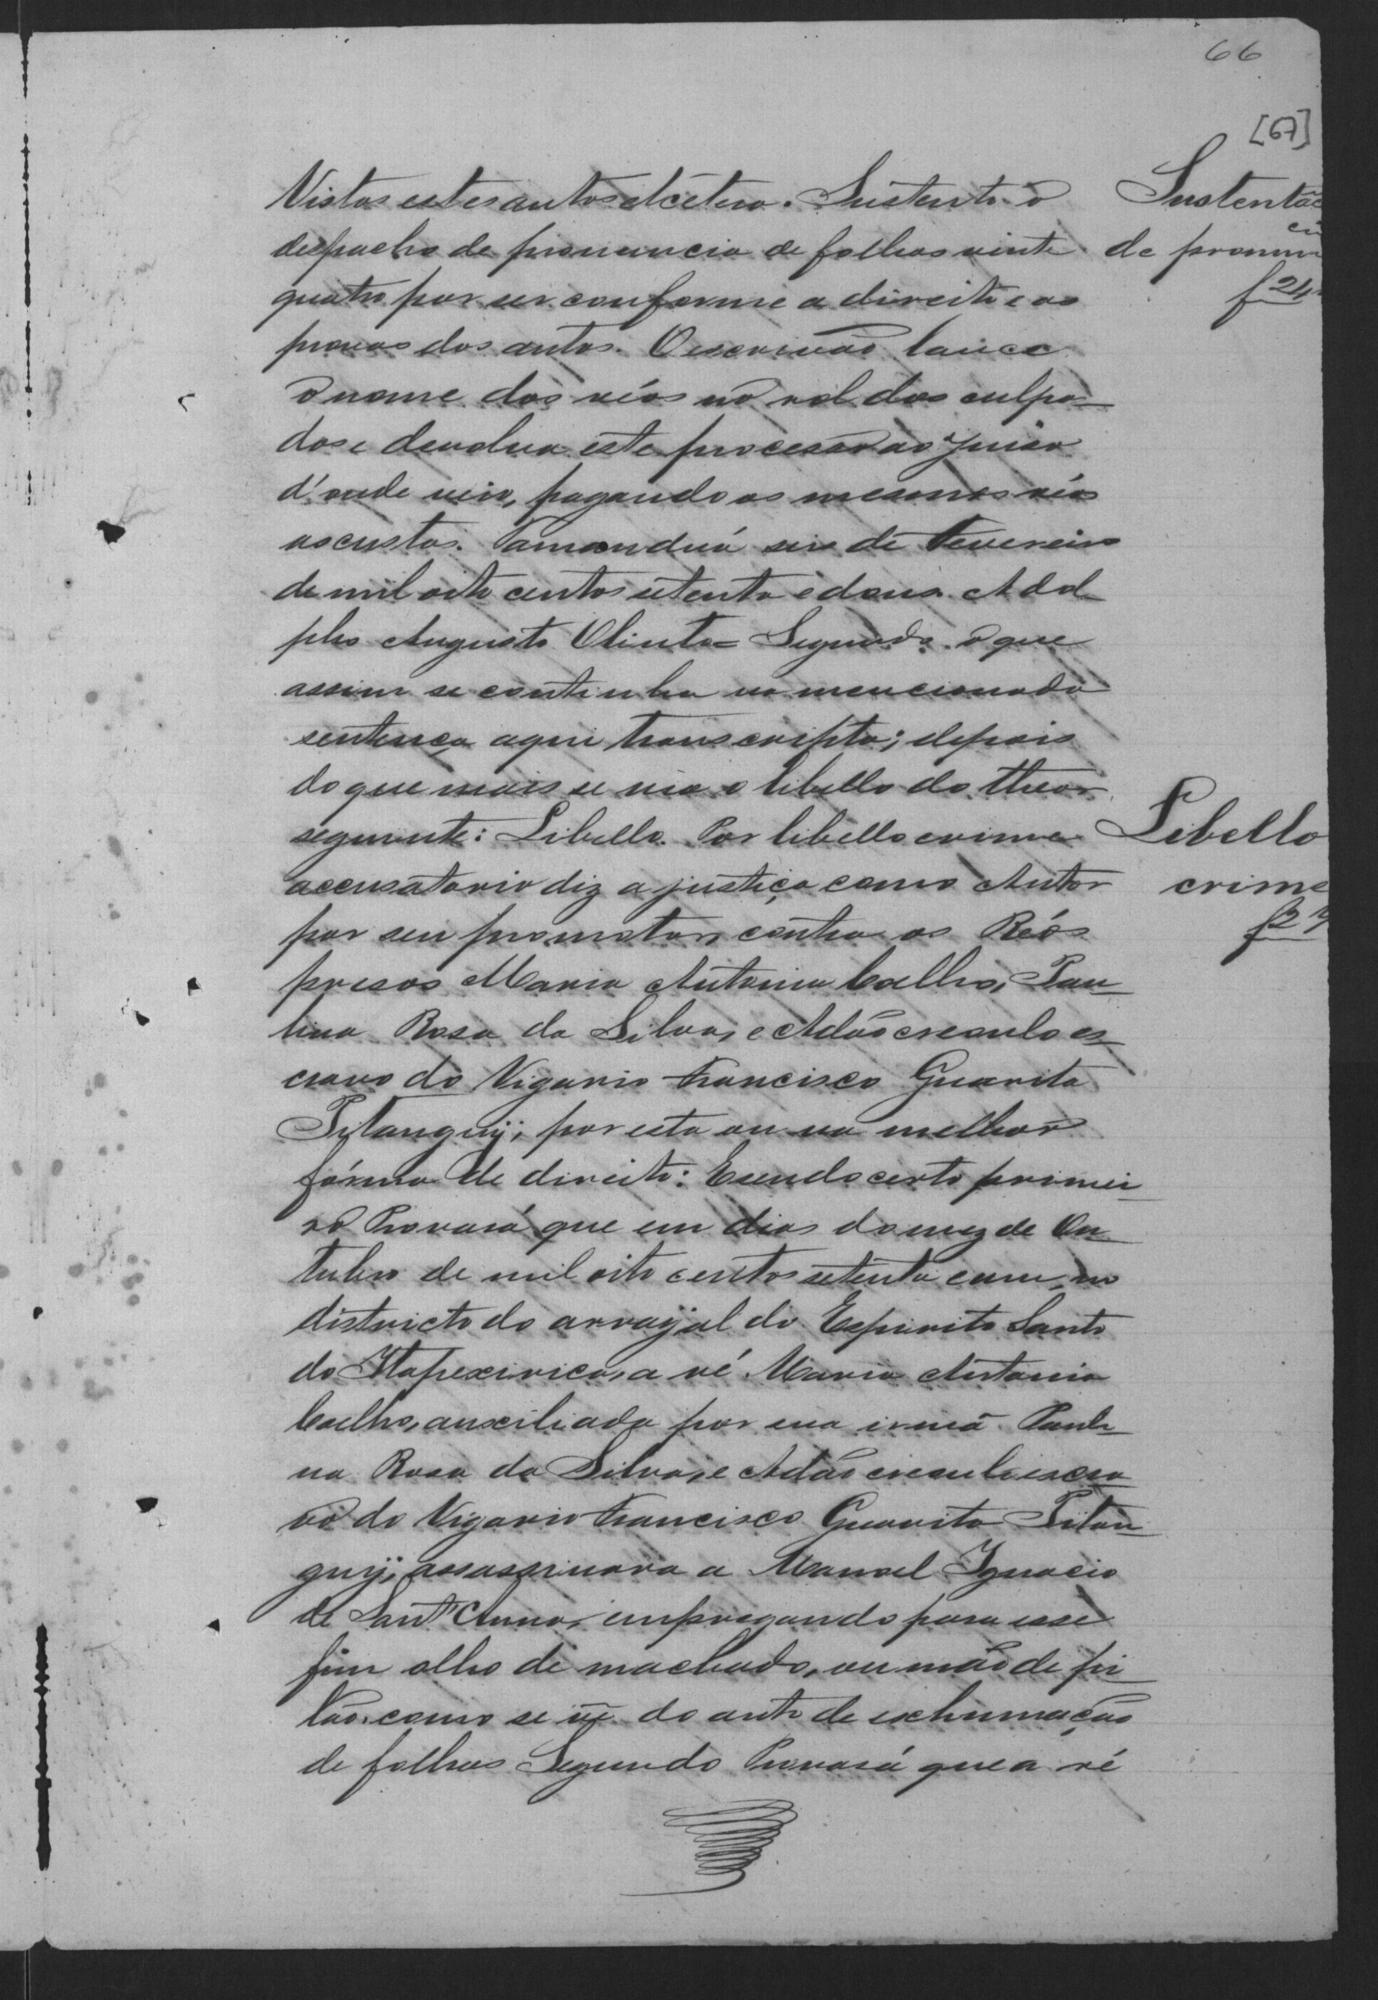 66
[67]
Vistos estes autos etcetera. Sustento o
despacho de pronuncia de folhas vinte
quatro por ser conforme a direito e as
provas dos autos. O escrivão lance
o nome dos réos no rol dos culpa-
dos e devolva este processo ao Juiso
d'onde veio, pagando os mesmos réos
as custas. Tamanduá seis de Fevereiro
de mil oito centos setenta e dous. Adol-
pho Augusto Olinto= Segundo o que
assim se continha na mencionada
sentença aqui transcripta; depois
do que mais se via o libello do theor
seguinte: Libello. Por libello crime
accusatorio diz a justiça como Autor
por seu promotor, contra os Réos
presos Maria Antonia Coelho, Pau-
lina Rosa da Silva, e Adão creoulo es-
cravo do Vigario Francisco Guarita
Pitanguÿ, por esta ou na melhor
fórma de direito: E sendo certo primei-
ro Provará que em dias do mez de Ou-
tubro de mil oito centos setenta e um, no
districto do arrayal do Espirito Santo
do Itapexirica, a ré Maria Antonia
Coelho, auxiliada por sua irmã Pauli-
na Rosa da Silva, e Adão creoulo escra-
vo do Vigario Francisco Guarita Pitan-
guÿ, assassinara a Manoel Ignacio
de Sant'Anna, empregando para esse
fim olho de machado, ou mão de pi-
lão, como se vê do auto de exhumação
de folhas Segundo Provará que a ré
Sustentaç
de pronun
cia
f 24
Libello
crime
f 27